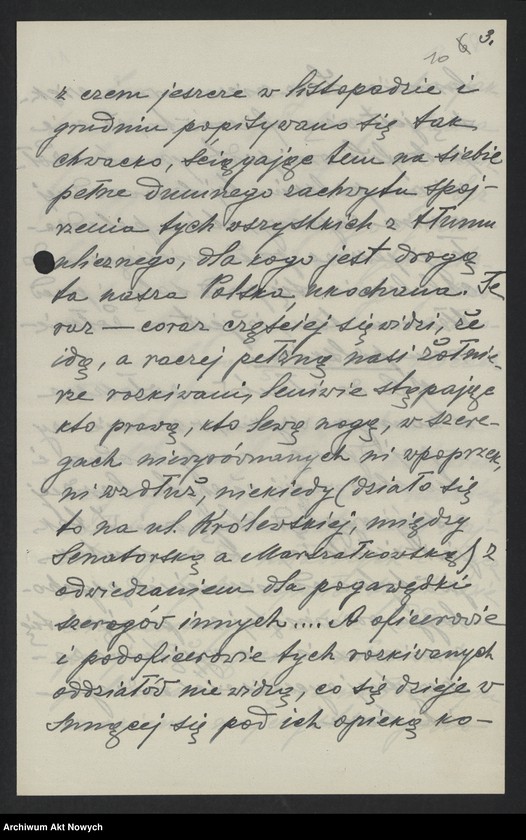 10 6 3.
z czem jeszcze w listopadzie i
grudniu popisywano się tak
chwacko, ściągając tem na siebie
pełne dumnego zachwytu spoj-
rzenia tych wszystkich z tłumu
ulicznego, dla kogo jest drogą
ta nasza Polska, ukochana. Te
raz — coraz częściej się widzi, że
idą, a raczej pełzną nasi żołnie-
rze rozkiwani, leniwie stąpając
kto prawą, kto lewą nogą, w szere-
gach niewyrównanych ni wpoprzek,
ni wzdłuż, niekiedy (działo się
to na ul. Królewskiej, między
Senatorską a Marszałkowską) z
odwiedzaniem dla pogawędki
szeregów innych.... A oficerowie
i podoficerowie tych rozkiwanych
oddziałów nie widzą, co się dzieje w
snującej się pod ich opieką ko-
Archiwum Akt Nowych